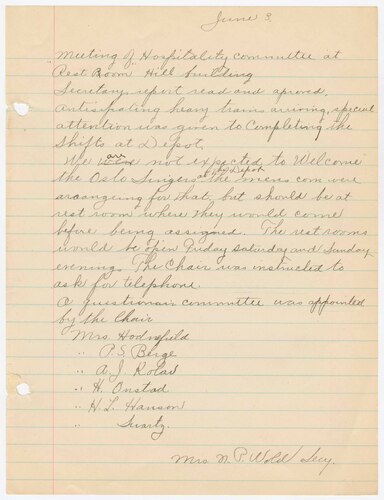 June 3.
Meeting of Hospitality committee at
Rest Room Hill building
Secretary report read and aproved.
Anticipating heavy trains arriving, special
attention was given to Completing the
Shifts at Depot.
We are not expected to Welcome
the Oslo Singers at the Depot the mens com were
araanging for that, but should be at
rest room where they would come
before being assigned. The rest rooms
would be open Friday Saturday and Sunday
evenings. The Chair was instructed to
ask for telephone.
A questionair committee was appointed
by the Chair
Mrs Hodnefield
" P.S. Berge
" A. J. Rolad
" H. Onstad
" H. L. Hanson
" Swartz.
Mrs M. P. Wold Secy.